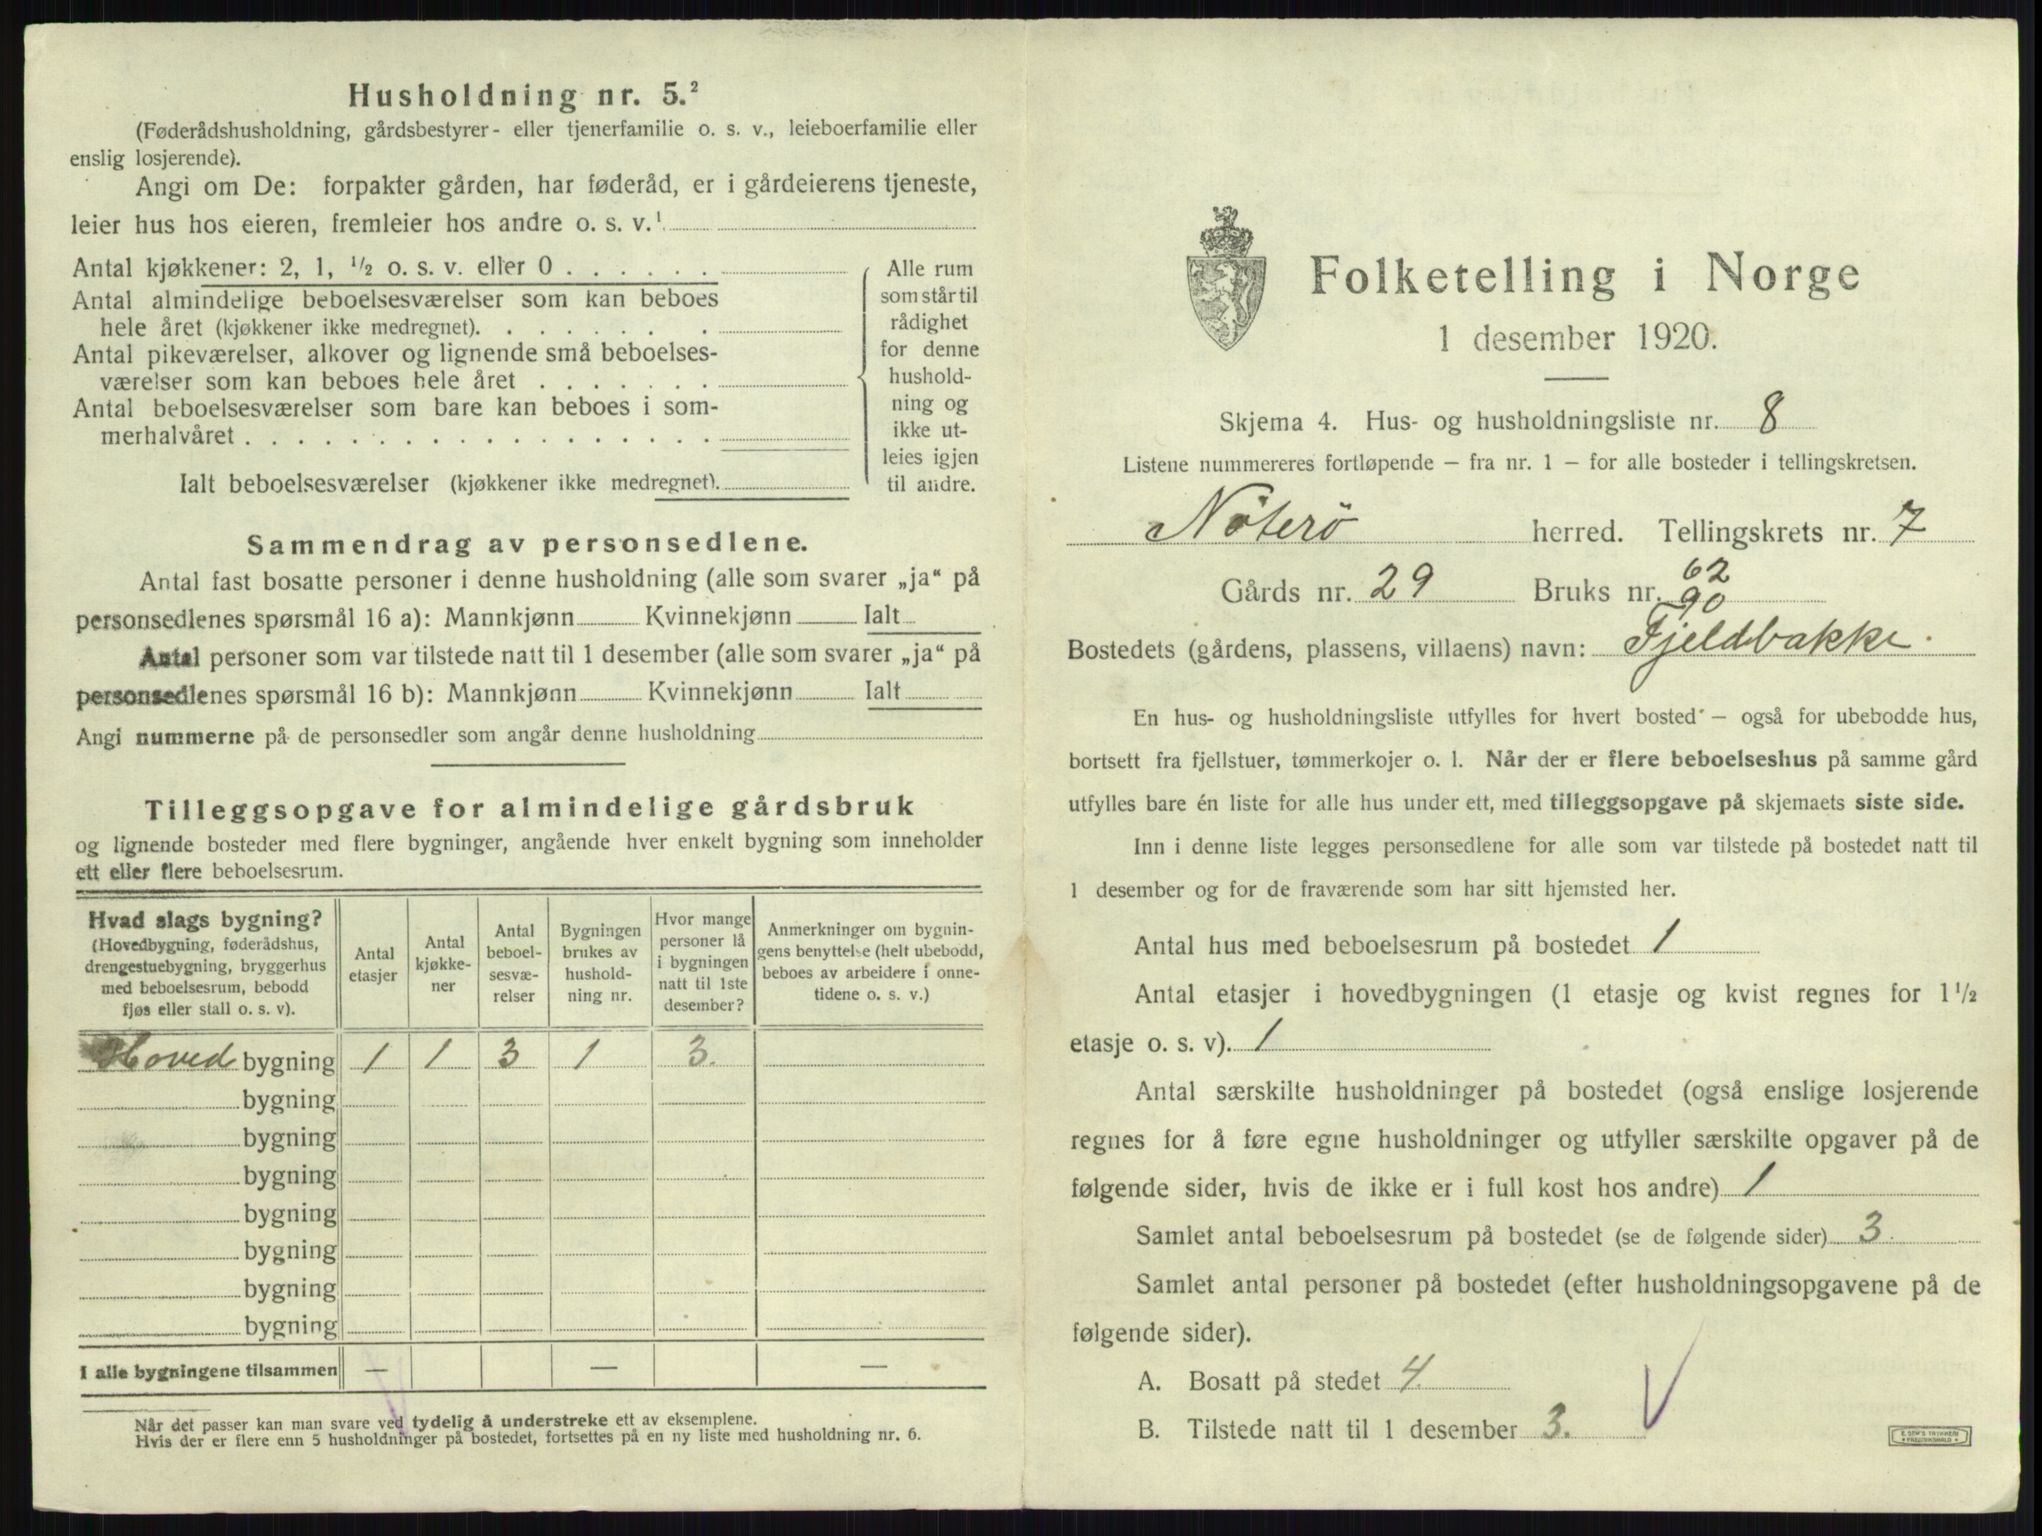 Husholdning nr. 5.²
(Føderådshusholdning, gårdsbestyrer- eller tjenerfamilie o. s. v., leieboerfamilie eller
enslig losjerende).
Angi om De: forpakter gården, har føderåd, er i gårdeierens tjeneste,
leier hus hos eieren, fremleier hos andre o. s. v.¹
Antal kjøkkener: 2, 1, ½ o. s. v. eller 0 . . . . . .
Antal almindelige beboelsesværelser som kan beboes
hele året (kjøkkener ikke medregnet). . . . . . . .
Antal pikeværelser, alkover og lignende små beboelses-
værelser som kan beboes hele året . . . . . . .
Antal beboelsesværelser som bare kan beboes i som-
merhalvåret . . . . . . . . . . . . . . . . . .
Ialt beboelsesværelser (kjøkkener ikke medregnet).
Alle rum
som står til
rådighet
for denne
hushold-
ning og
ikke ut-
leies igjen
til andre.
Sammendrag av personsedlene.
Antal fast bosatte personer i denne husholdning (alle som svarer „ja“ på
personsedlenes spørsmål 16 a): Mannkjønn Kvinnekjønn Ialt
Antal personer som var tilstede natt til 1 desember (alle som svarer „ja“ på
personsedlenes spørsmål 16 b): Mannkjønn Kvinnekjønn Ialt
Angi nummerne på de personsedler som angår denne husholdning
Tilleggsopgave for almindelige gårdsbruk
og lignende bosteder med flere bygninger, angående hver enkelt bygning som inneholder
ett eller flere beboelsesrum.
Hvad slags bygning?
(Hovedbygning, føderådshus,
drengestuebygning, bryggerhus
med beboelsesrum, bebodd
fjøs eller stall o. s. v).
Antal
etasjer
Antal
kjøkke-
ner
Antal
beboel-
sesvæ-
relser
Bygningen
brukes av
hushold-
ning nr.
Hvor mange
personer lå
i bygningen
natt til 1ste
desember?
Anmerkninger om bygnin-
gens benyttelse (helt ubebodd,
beboes av arbeidere i onne-
tidene o. s. v.)
Hoved bygning 1 1 3 1 3.
bygning
bygning
bygning
bygning
bygning
bygning
bygning
I alle bygningene tilsammen — — —
Når det passer kan man svare ved tydelig å understreke ett av eksemplene.
Hvis der er flere enn 5 husholdninger på bostedet, fortsettes på en ny liste med husholdning nr. 6.
Folketelling i Norge
1 desember 1920.
Skjema 4. Hus- og husholdningsliste nr. 8
Listene nummereres fortløpende – fra nr. 1 – for alle bosteder i tellingskretsen.
Nøterø herred. Tellingskrets nr. 7
Gårds nr. 29 Bruks nr. 62
90
Bostedets (gårdens, plassens, villaens) navn: Fjeldbakke.
En hus- og husholdningsliste utfylles for hvert bosted – også for ubebodde hus,
bortsett fra fjellstuer, tømmerkojer o. l. Når der er flere beboelseshus på samme gård
utfylles bare én liste for alle hus under ett, med tilleggsopgave på skjemaets siste side.
Inn i denne liste legges personsedlene for alle som var tilstede på bostedet natt til
1 desember og for de fraværende som har sitt hjemsted her.
Antal hus med beboelsesrum på bostedet 1
Antal etasjer i hovedbygningen (1 etasje og kvist regnes for 1½
etasje o. s. v). 1
Antal særskilte husholdninger på bostedet (også enslige losjerende
regnes for å føre egne husholdninger og utfyller særskilte opgaver på de
følgende sider, hvis de ikke er i full kost hos andre) 1
Samlet antal beboelsesrum på bostedet (se de følgende sider) 3.
Samlet antal personer på bostedet (efter husholdningsopgavene på de
følgende sider).
A. Bosatt på stedet 4.
B. Tilstede natt til 1 desember 3.